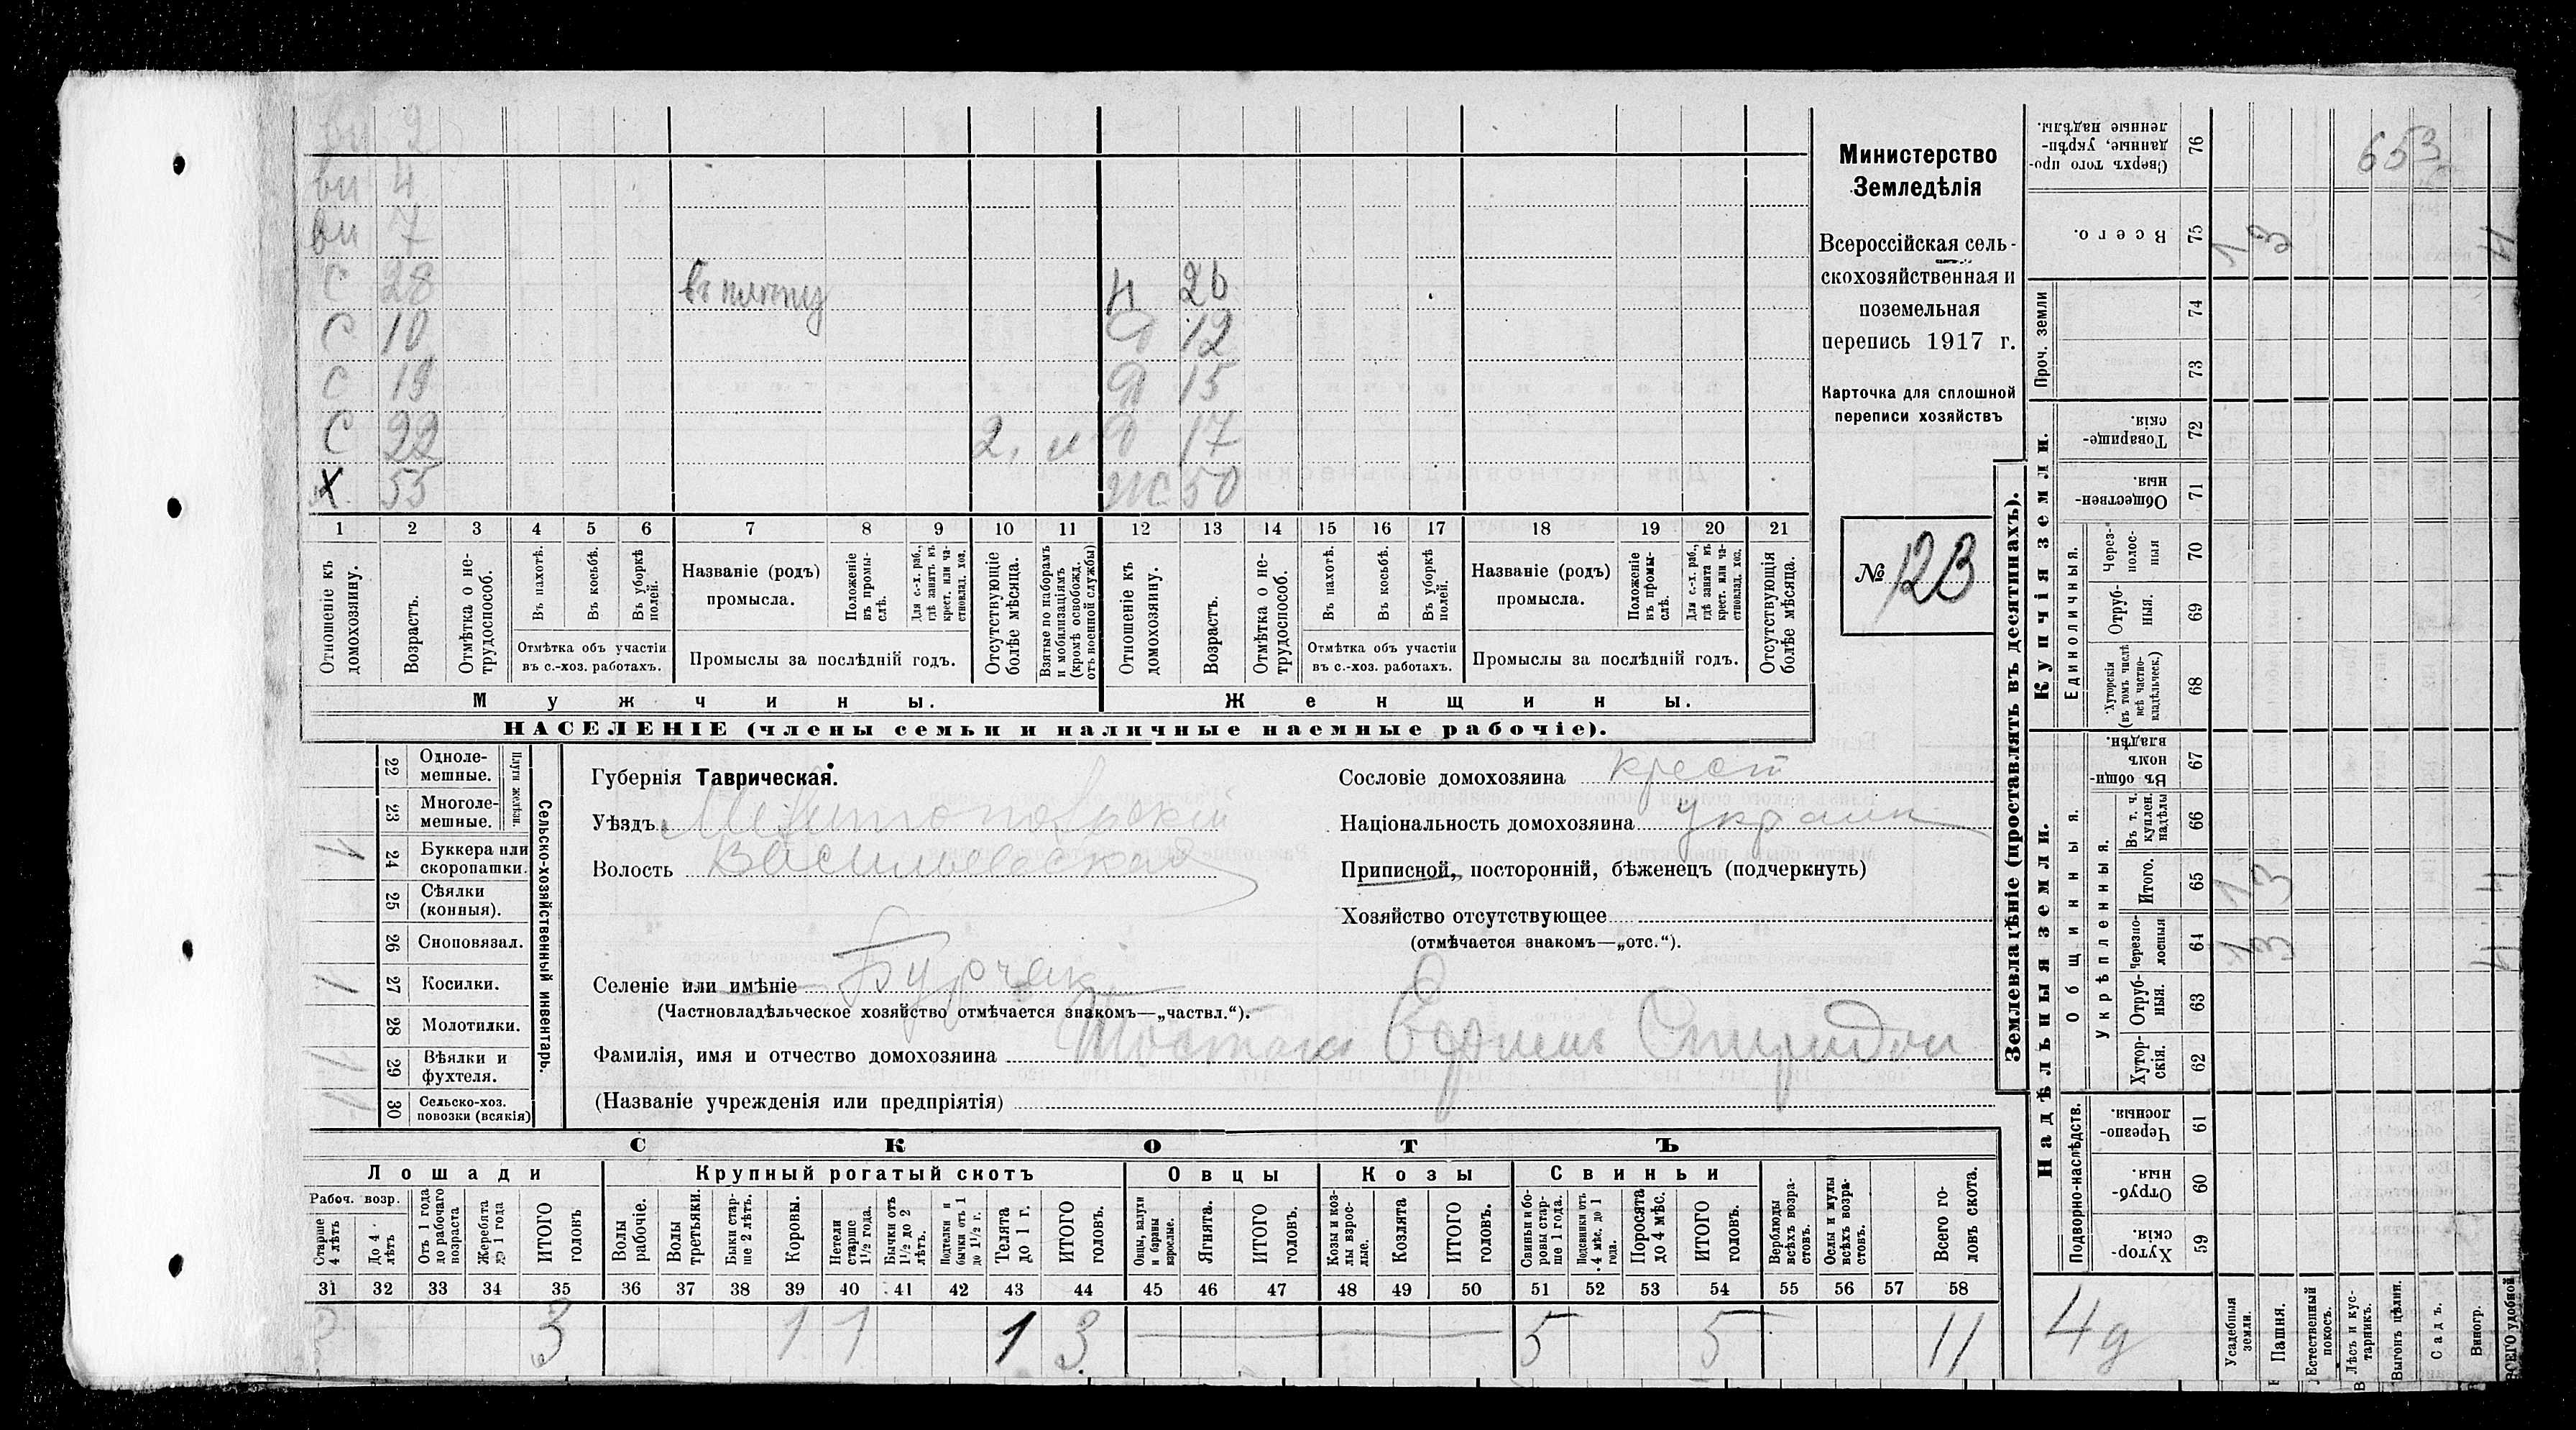 ви 2
ви 4
ви 7
С 28 въ плѣну Н 26
С 10 Д 12
С 19 Д 15
С 22 2, и Д 17
Х 55 Ж 50
1 2 3 4 5 6 7 8 9 10 11 12 13 14 15 16 17 18 19 20 21
Отношеніе къ домохозяину.
Возрастъ.
Отмѣтка о не-трудоспособ.
Въ пахотѣ.
Въ косьбѣ.
Въ уборкѣ полей.
Отмѣтка объ участіи
въ с.-хоз. работахъ.
Названіе (родъ)
промысла.
Положеніе въ промы-слѣ.
Для с.-х. раб., гдѣ занятъ въ крест. или ча-стновлад. хоз.
Промыслы за послѣдній годъ.
Отсутствующіе болѣе мѣсяца.
Взятые по наборамъ и мобилизаціямъ (кромѣ освобожд. отъ военной службы)
Отношеніе къ домохозяину.
Возрастъ.
Отмѣтка о не-трудоспособ.
Въ пахотѣ.
Въ косьбѣ.
Въ уборкѣ полей.
Отмѣтка объ участіи
въ с.-хоз. работахъ.
Названіе (родъ)
промысла.
Положеніе въ промы-слѣ.
Для с.-х. раб., гдѣ занята въ крест. или ча-стновлад. хоз.
Промыслы за послѣдній годъ.
Отсутствующія болѣе мѣсяца.
Мужчины. Женщины.
НАСЕЛЕНІЕ (члены семьи и наличные наемные рабочіе).
Министерство
Земледѣлія
Всероссійская сель-
скохозяйственная и
поземельная
перепись 1917 г.
Карточка для сплошной
переписи хозяйствъ
№ 123
Сельско-хозяйственный инвентарь.
Плуги желѣзн.
22 Одноле-мешные.
23 Многоле-мешные.
24 Буккера или скоропашки. 1
25 Сѣялки (конныя).
26 Сноповязал.
27 Косилки. 1
28 Молотилки.
29 Вѣялки и фухтеля. 1
30 Сельско-хоз. повозки (всякія)
Губернія Таврическая.
Уѣздъ Мелитопольскій
Волость Васильевская
Селеніе или имѣніе Бурчакъ
(Частновладѣльческое хозяйство отмѣчается знакомъ—„частвл.“).
Фамилія, имя и отчество домохозяина Спиридон
(Названіе учрежденія или предпріятія)
Сословіе домохозяина крест
Національность домохозяина украин
Приписной, посторонній, бѣженецъ (подчеркнуть)
Хозяйство отсутствующее
(отмѣчается знакомъ—„отс.“).
СКОТЪ
Лошади Крупный рогатый скотъ Овцы Козы Свиньи
Рабоч. возр.
Старше 4 лѣтъ
До 4 лѣтъ
Отъ 1 года до рабочаго возраста
Жеребята до 1 года
ИТОГО головъ
Волы рабочіе.
Волы третьяки.
Быки стар-ше 2 лѣтъ.
Коровы.
Нетели старше 1½ года.
Бычки отъ 1½ до 2 лѣтъ.
Подтелки и бычки отъ 1 до 1½ г.
Телята до 1 г.
ИТОГО головъ.
Овцы, валухи и бараны взрослые.
Ягнята.
ИТОГО головъ.
Козы и коз-лы взрос-лые.
Козлята
ИТОГО головъ.
Свиньи и бо-ровы стар-ше 1 года.
Подсвинки отъ 4 мѣс. до 1 года.
Поросята до 4 мѣс.
ИТОГО головъ.
Верблюды всѣхъ возра-стовъ.
Ослы и мулы всѣхъ возра-стовъ.
Всего го-ловъ скота.
31 32 33 34 35 36 37 38 39 40 41 42 43 44 45 46 47 48 49 50 51 52 53 54 55 56 57 58
3 3 1 1 1 3 5 5 11
Землевладѣніе (проставлять въ десятинахъ).
Купчія земли.
Надѣльныя земли.
Проч. земли
Единоличныя.
Общинныя.
Укрѣпленныя.
Подворно-наслѣдств.
Сверхъ того про-данные, укрѣп-ленные надѣлы. 76 653
Всего. 75 13
74
73
Товарище-скія. 72
Обществен-ныя. 71
Через-полос-ныя 70
Отруб-ныя. 69
Хуторскія (въ томъ числѣ всѣ частно-владѣльческ.) 68
Въ общи-номъ владѣн. 67
Въ т. ч. куплен. надѣлы 66
Итого. 65 13
Черезпо-лосныя 64 13
Отруб-ныя. 63
Хутор-скія. 62
Черезпо-лосныя. 61
Отруб-ныя. 60
Хутор-скія. 59
4д
Усадебныя земли.
Пашня.
Естественный покосъ.
Лѣсъ и кус-тарникъ.
Выгонъ цѣлин.
Садъ.
Виногр.
ВСЕГО удобной